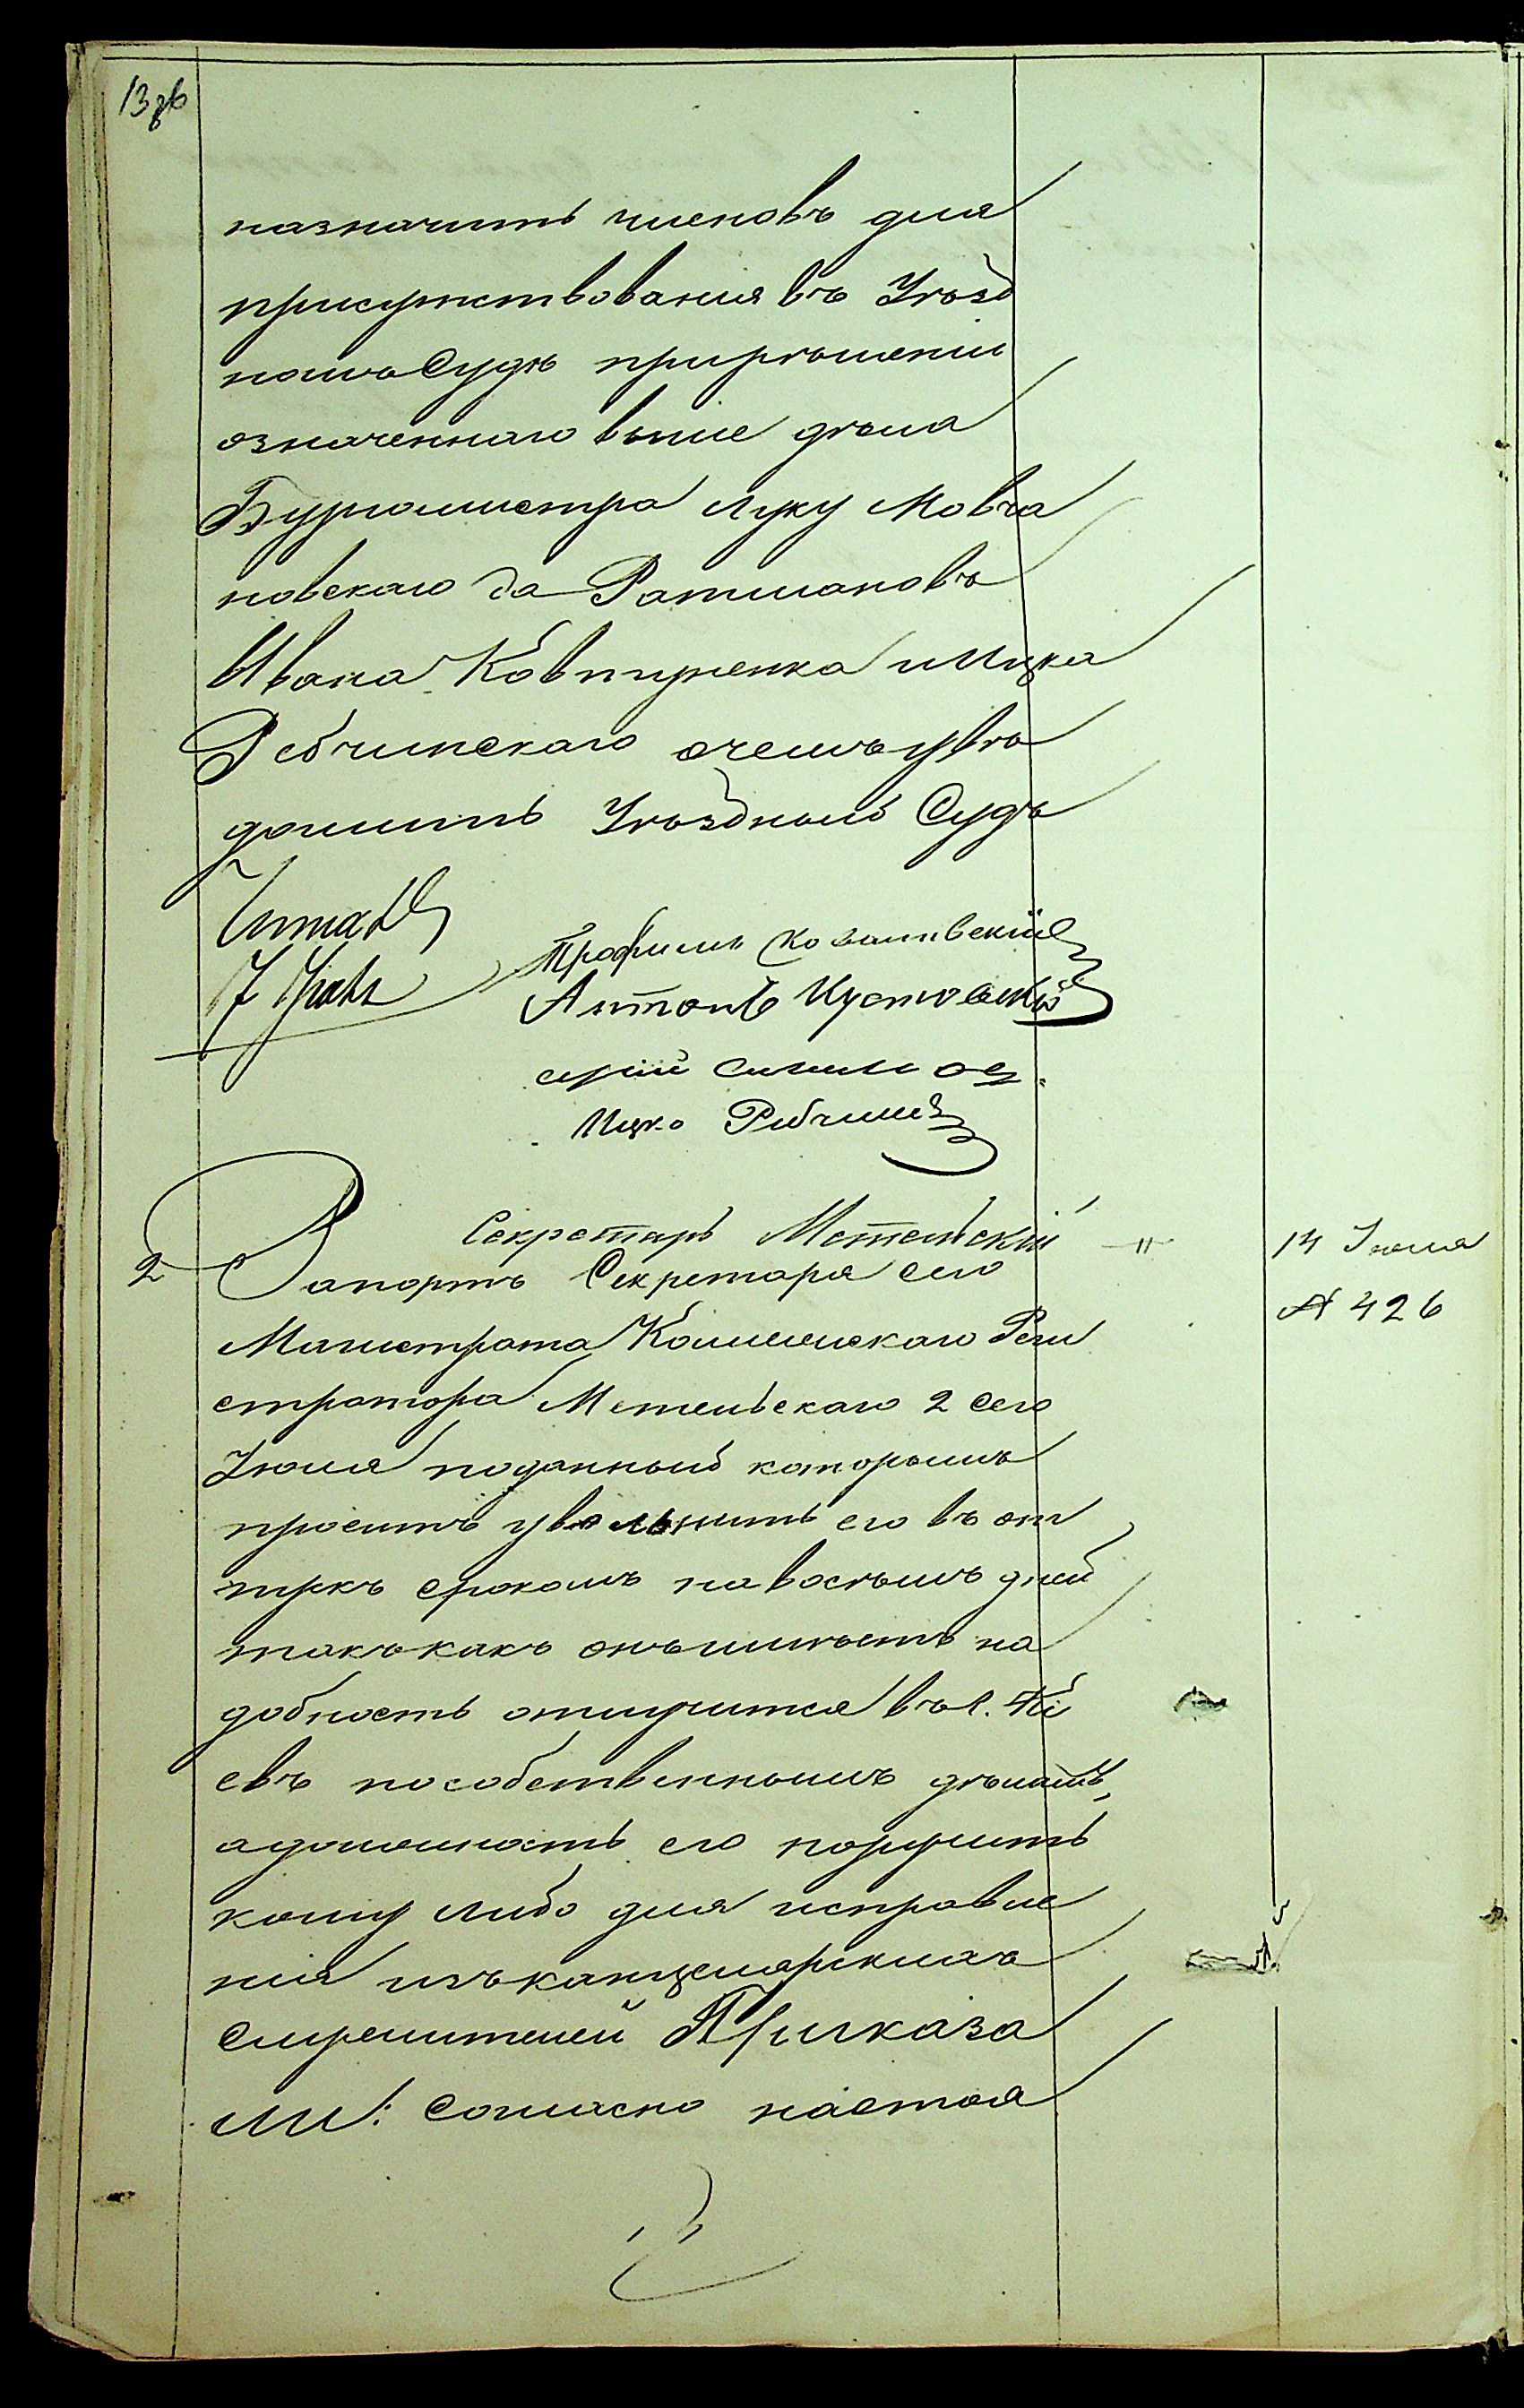 13 зв
назначить членовъ для
присутствования въ Уѣзд
номъ Судѣ при рѣшеніи
означеннаго выше дѣла
Бургомистра Луку Мовча
новскаго да Ратмановъ
Ивана Ковтуненка и Ицка
Рабчинскаго о чемъ увѣ
домить Уѣздный Судъ
Читалъ
Трофимъ Ковалевскій
Антонъ Кустовскій
Ицко Рабчинс
Секретарь Метельскій
2 Рапортъ Секретаря сего " 14 Іюля
Магистрата Коллежскаго Реги № 426
стратора Метельскаго 2 сего
Іюля поданный которымъ
проситъ увольнить его въ от
пускъ срокомъ на восемь дней
такъ какъ онъ имѣетъ на
добность отлучится въ г. Кі
евъ по собственнымъ дѣламъ,
а должность его поручить
кому либо для исправле
нія изъ канцелярскихъ
служителей Приказа
ли: Согласно настоя